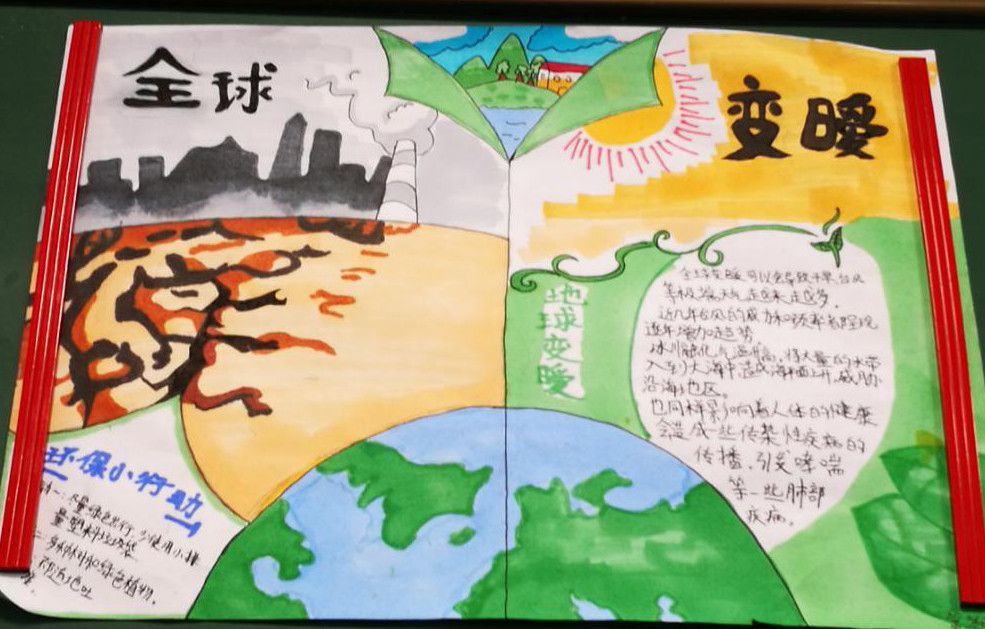 全球
变暖
地球变暖
全球变暖可以会导致干旱台风
等极端天气越来越多.
近几年台风的威力和频率都呈现
逐年增加趋势.
冰川融化气温升高,将大量的水带
入到大海中造成海面上升,威胁
沿海地区。
也同样影响着人体的健康
会造成一些传染性疾病的
传播.引发哮喘
等一些肺部
疾病。
环保小行动
尽量绿色出行.少使用小排
量塑料垃圾袋
二.多种树和绿色植物.